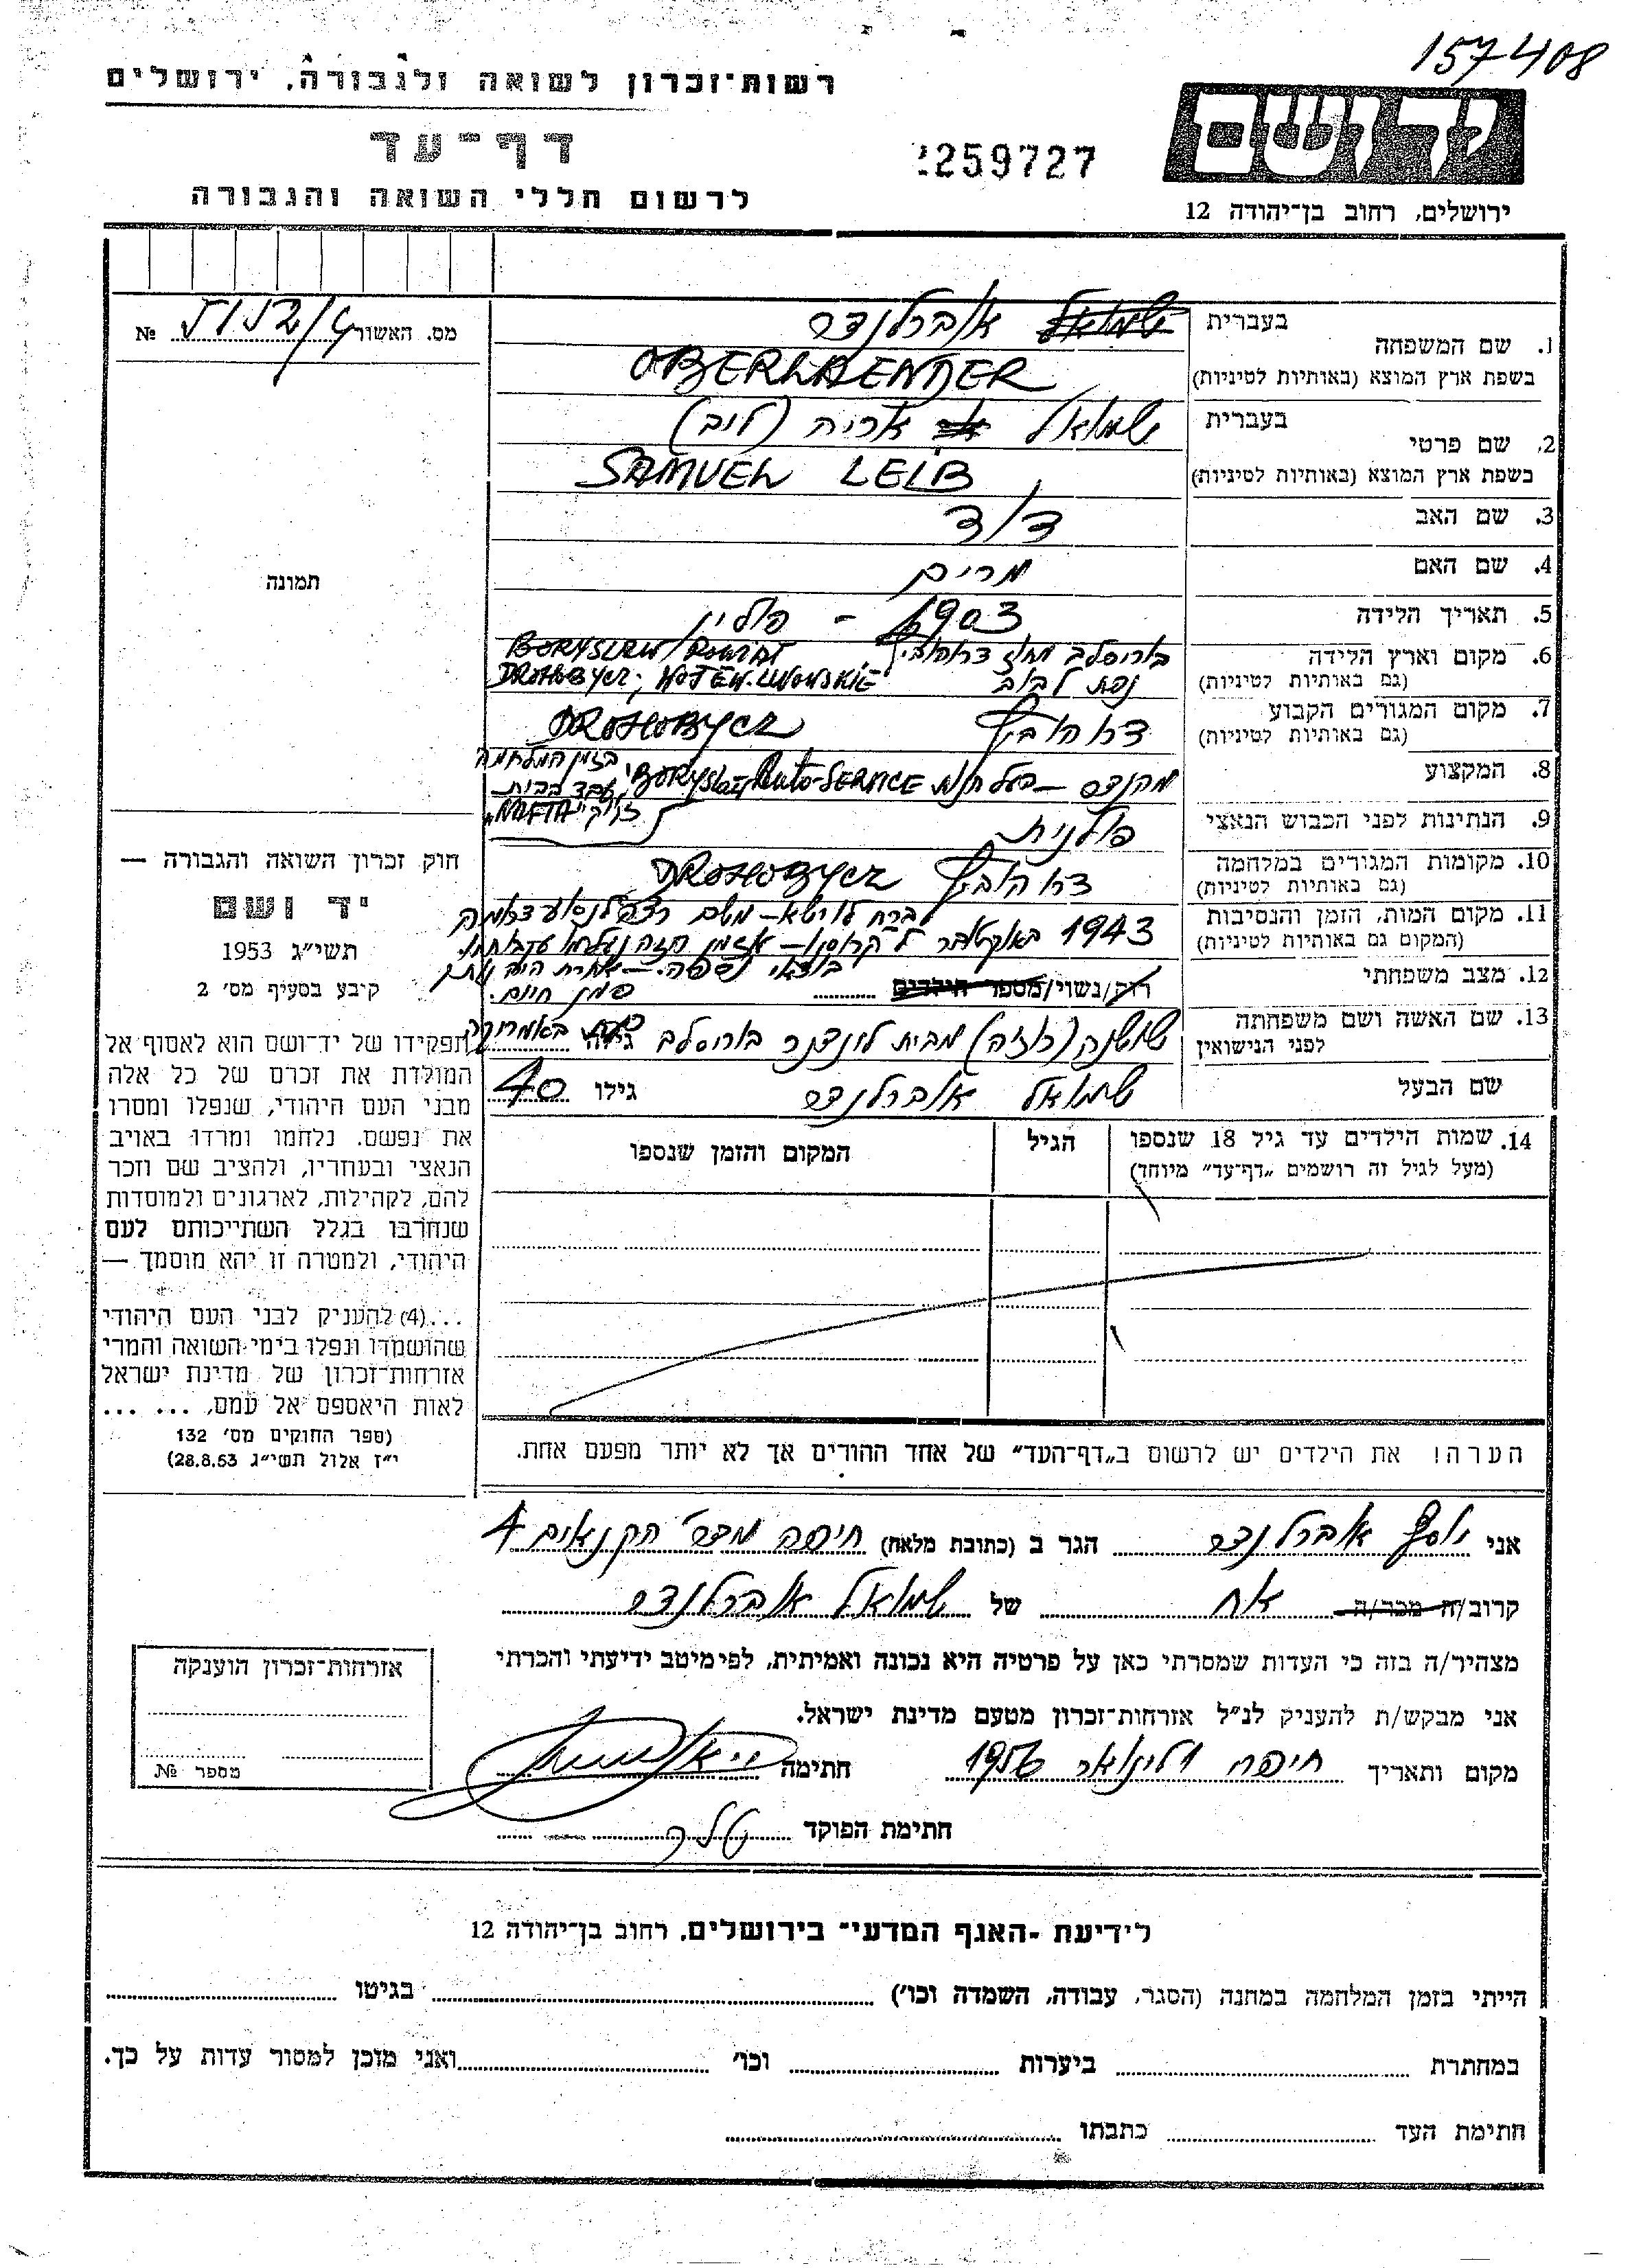 157408
רשות־זכרון לשואה ולגבורה, ירושלים
דף־עד
259727
יד ושם
לרשום חללי השואה והגבורה
ירושלים, רחוב בן־יהודה 12
מס. האשור №
1. שם המשפחה
בעברית שמואל אוברלנדר
בשפת ארץ המוצא (באותיות לטיניות) OBERLAENDER
2. שם פרטי
בעברית שמואל אריה (ליב)
בשפת ארץ המוצא (באותיות לטיניות) SAMUEL LEIB
3. שם האב דוד
4. שם האם מרים
5. תאריך הלידה 1903 - פולין
6. מקום וארץ הלידה בוריסלב מחוז דרוהוביץ BORYSLAW/POWIAT
(גם באותיות לטיניות) נפת לבוב DROHOBYCZ; WOJEW. LWOWSKIE
7. מקום המגורים הקבוע דרוהוביץ DROHOBYCZ
(גם באותיות לטיניות)
בזמן המלחמה
8. המקצוע מהנדס – בעל חנות Auto-SERVICE עבד בבית
זיקוק "NAFTA"
9. הנתינות לפני הכבוש הנאצי פולנית
10. מקומות המגורים במלחמה דרוהוביץ DROHOBYCZ
(גם באותיות לטיניות)
11. מקום המות, הזמן והנסיבות
(המקום גם באותיות לטיניות) 1943 באוקטובר
12. מצב משפחתי רוק/נשוי/מספר הילדים
13. שם האשה ושם משפחתה שושנה (רוזיה) מבית לינדנר בוריסלב גילה כעת באמריקה
לפני הנישואין
שם הבעל שמואל אוברלנדר גילו 40
14. שמות הילדים עד גיל 18 שנספו הגיל המקום והזמן שנספו
(מעל לגיל זה רושמים „דף־עד” מיוחד)
הערה! את הילדים יש לרשום ב„דף־העד” של אחד ההורים אך לא יותר מפעם אחת.
תמונה
חוק זכרון השואה והגבורה —
יד ושם
תשי״ג 1953
קיבע בסעיף מס׳ 2
תפקידו של יד־ושם הוא לאסוף אל
המולדת את זכרם של כל אלה
מבני העם היהודי, שנפלו ומסרו
את נפשם. נלחמו ומרדו באויב
הנאצי ובעוזריו, ולהציב שם וזכר
להם, לקהילות, לארגונים ולמוסדות
שנחרבו בגלל השתייכותם לעם
היהודי, ולמטרה זו יהא מוסמך —
...(4) להעניק לבני העם היהודי
שהושמדו ונפלו בימי השואה והמרי
אזרחות־זכרון של מדינת ישראל
לאות היאספם אל עמם, ... ...
(ספר החוקים מס׳ 132
י״ז אלול תשי״ג 28.8.53)
אני יוסף אוברלנדר הגר ב (כתובת מלאה) חיפה מדר׳ הקנאים 4
קרוב/ה מכר/ה אח של שמואל אוברלנדר
מצהיר/ה בזה כי העדות שמסרתי כאן על פרטיה היא נכונה ואמיתית, לפי מיטב ידיעתי והכרתי
אני מבקש/ת להעניק לנ״ל אזרחות־זכרון מטעם מדינת ישראל.
מקום ותאריך חיפה 1956 חתימה
חתימת הפוקד
אזרחות־זכרון הוענקה
מספר №
לידיעת ־האגף המדעי־ בירושלים, רחוב בן־יהודה 12
הייתי בזמן המלחמה במחנה (הסגר, עבודה, השמדה וכו׳) בגיטו
במחתרת ביערות וכו׳ ואני מוכן למסור עדות על כך.
חתימת העד כתבתו